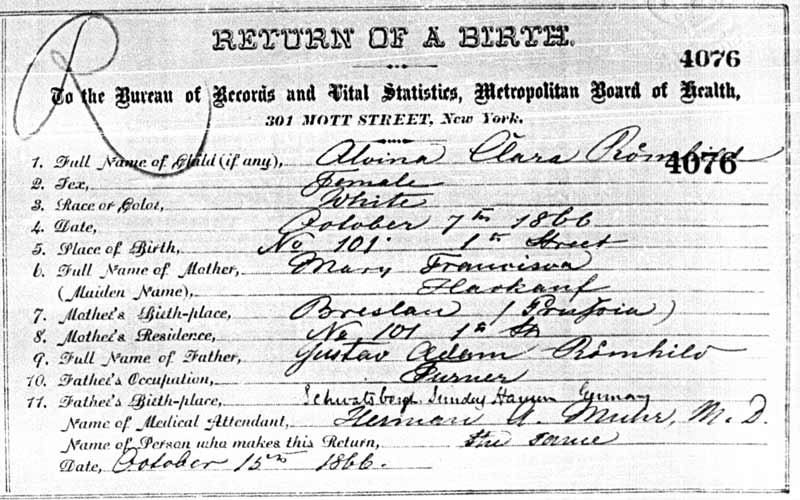 R
RETURN OF A BIRTH.
4076
To the Bureau of Records and Vital Statistics, Metropolitan Board of Health,
301 MOTT STREET, New York.
1. Full Name of Child (if any), Alvina Clara Römhild 4076
2. Sex, Female
3. Race or Color, White
4. Date, October 7th 1866
5. Place of Birth, No 101 1st Street
6. Full Name of Mother, Mary Francisca
(Maiden Name),
7. Mother's Birth-place, Breslau (Prussia)
8. Mother's Residence, No 101 1st St
9. Full Name of Father, Gustav Adam Römhild
10. Father's Occupation, Turner
11. Father's Birth-place, Germany
Name of Medical Attendant, Herman A. Muhr, M.D.
Name of Person who makes this Return, the same
Date, October 15th 1866.